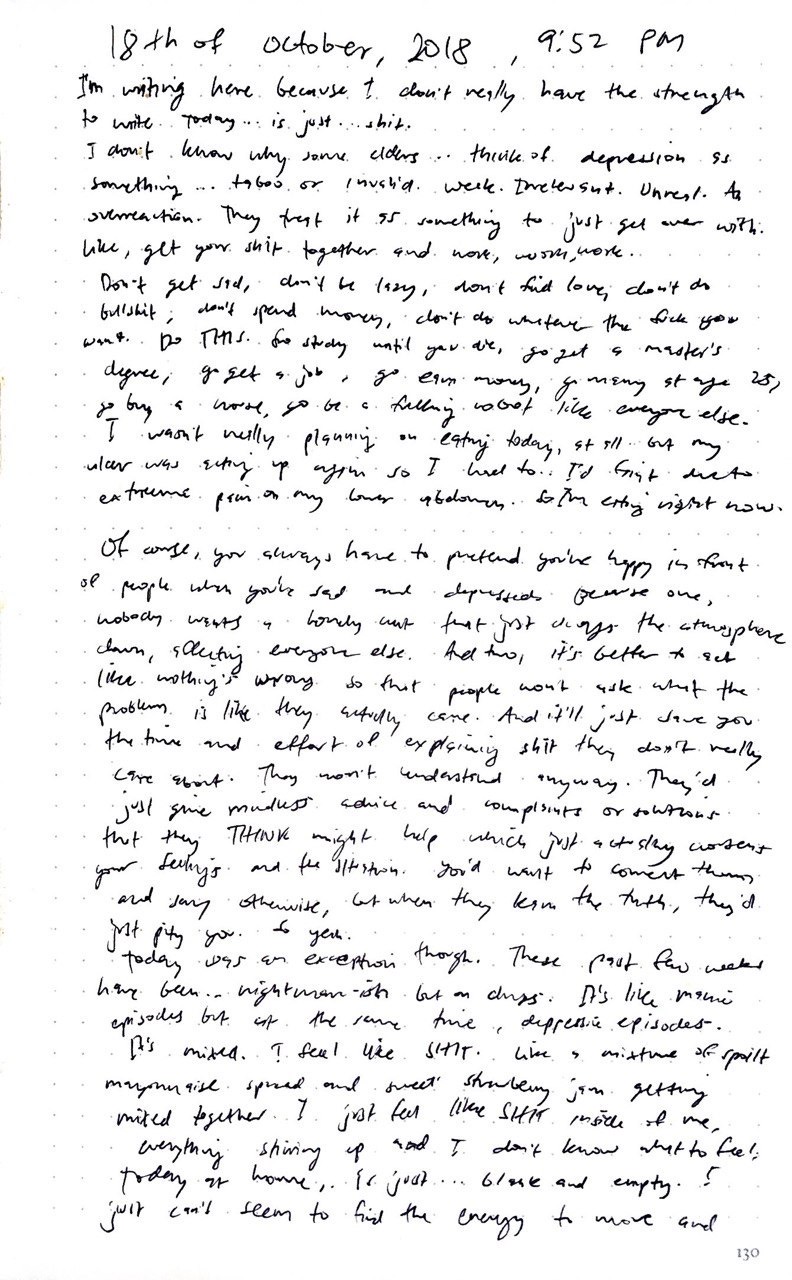 18th of october, 2018, 9:52 PM
I'm writing here because I don't really have the strength
to write. Today... is just... shit.
I don't know why some elders... think of depression as
something... taboo or invalid. weak. Irrelevant. Unreal. An
overreaction. They treat it as something to just get over with.
Like, get your shit together and work, work, work.
Don't get sad, don't be lazy, don't find love, don't do
bullshit, don't spend money, don't do whatever the fuck you
want. Do THIS. Go study until you die, go get a master's
degree, go get a job, go earn money, go marry at age 25,
go buy a house, go be a fucking robot like everyone else.
I wasn't really planning on eating today, at all but my
ulcer was acting up again so I had to.. I'd due to
extreme pain on my lower abdomen. So I'm eating right now.
Of course, you always have to pretend you're happy in front
of people when you're sad and depressed because one,
nobody wants a that just drags the atmosphere
down, affecting everyone else. And two, it's better to act
like nothing's wrong so that people won't ask what the
problem is like they actually care. And it'll just save you
the time and effort of explaining shit they don't really
care about. They won't understand anyway. They'd
just give mindless advice and complaints or solutions
that they THINK might help which just actually worsens
your feelings and the situation. You'd want to correct them
and say otherwise, but when they learn the truth, they'd
just pity you. So yeah.
Today was an exception though. These past few weeks
have been... nightmare-ish but on drugs. It's like manic
episodes but at the same time, depressive episodes.
It's mixed. I feel like SHIT. Like a mixture of spoilt
mayonnaise spread and sweet strawberry jam getting
mixed together. I just feel like SHIT inside of me,
everything stirring up and I don't know what to feel.
Today at home, is just... blank and empty. I
just can't seem to find the energy to move and
130